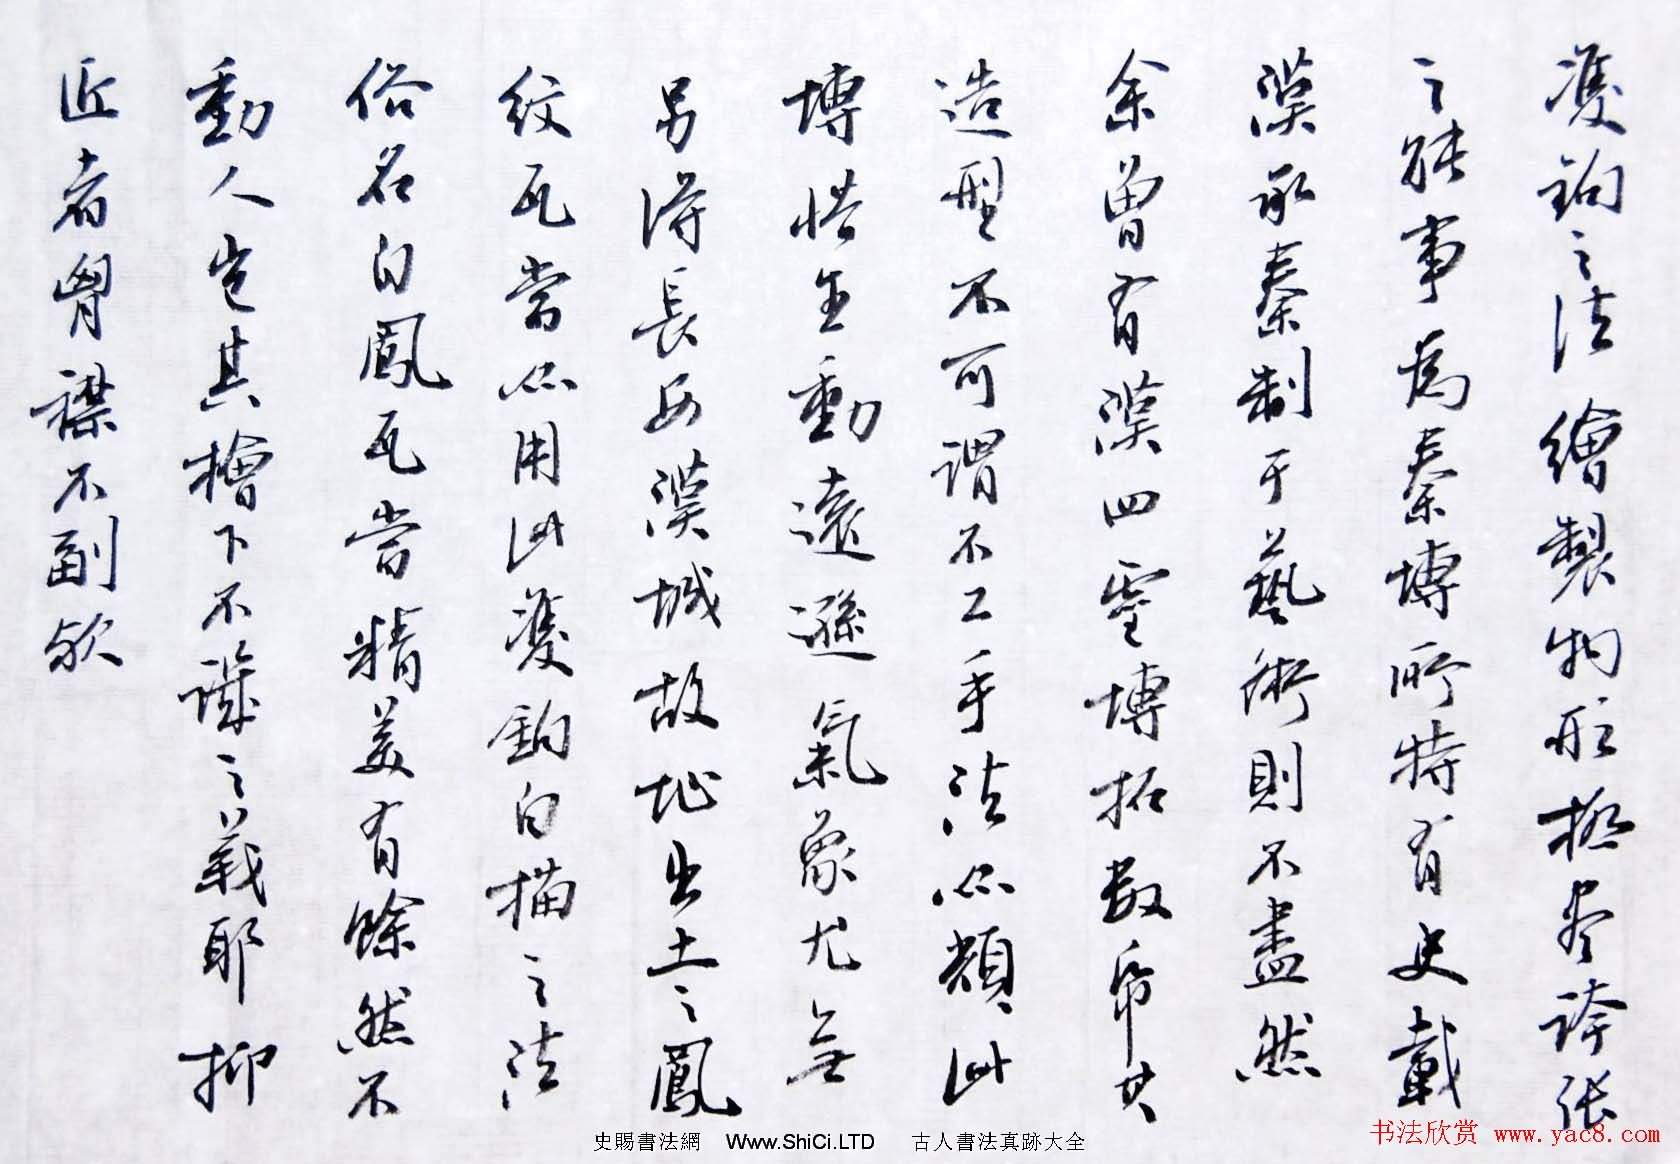 雙鉤之法繪製物形極盡誇张
之能事為秦塼所特有史載
漢承秦制于藝術則不盡然
余曾有漢四靈塼拓數帋其
造型不可謂不工手法亦類此
塼惜生動遠遜氣象尤無
另得長安漢城故址出土之鳳
紋瓦當亦用此雙鉤白描之法
俗名白鳳瓦當精美有餘然不
動人豈其檐下不識之義耶抑
匠者胷襟不副欤
史賜書法網 Www.ShiCi.LTD 古人書法真跡大全
书法欣赏 www.yac8.com